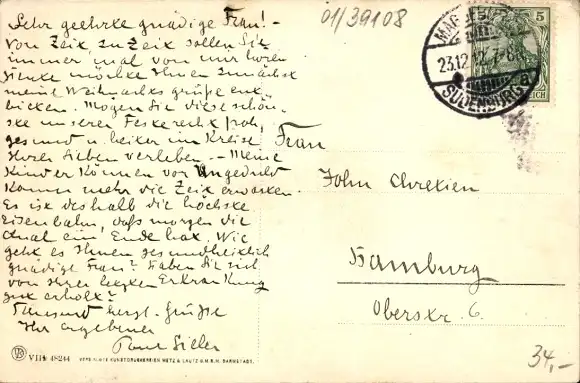 Sehr geehrte gnädige Frau! -
Von Zeit zu Zeit sollen Sie
immer mal von mir hören
Heute möchte Ihnen zunächst
meine Weihnachtsgrüße ent-
bieten. Mögen Sie diese schön-
ste unserer Feste recht froh,
gesund u. heiter im Kreise
Ihrer Lieben verleben. - Meine
Kinder können vor Ungeduld
kaum mehr die Zeit erwarten.
Es ist deshalb die höchste
Eisenbahn, daß morgen die
Qual ein Ende hat. Wie
geht es Ihnen gesundheitlich
gnädige Frau? Haben Sie sich
von Ihrer letzten Erkrankung
gut erholt?
Tausend herzl. Grüße
Ihr ergebener
Paul
01/39108
MAGDEBURG
23.12.12.7-8N
SUDENBURG
5
REICH
Frau
John Chretien
Hamburg
Oberstr. 6.
34,-
48244 VEREINIGTE KUNSTDRUCKEREIEN METZ & LAUTZ G.M.B.H. DARMSTADT.